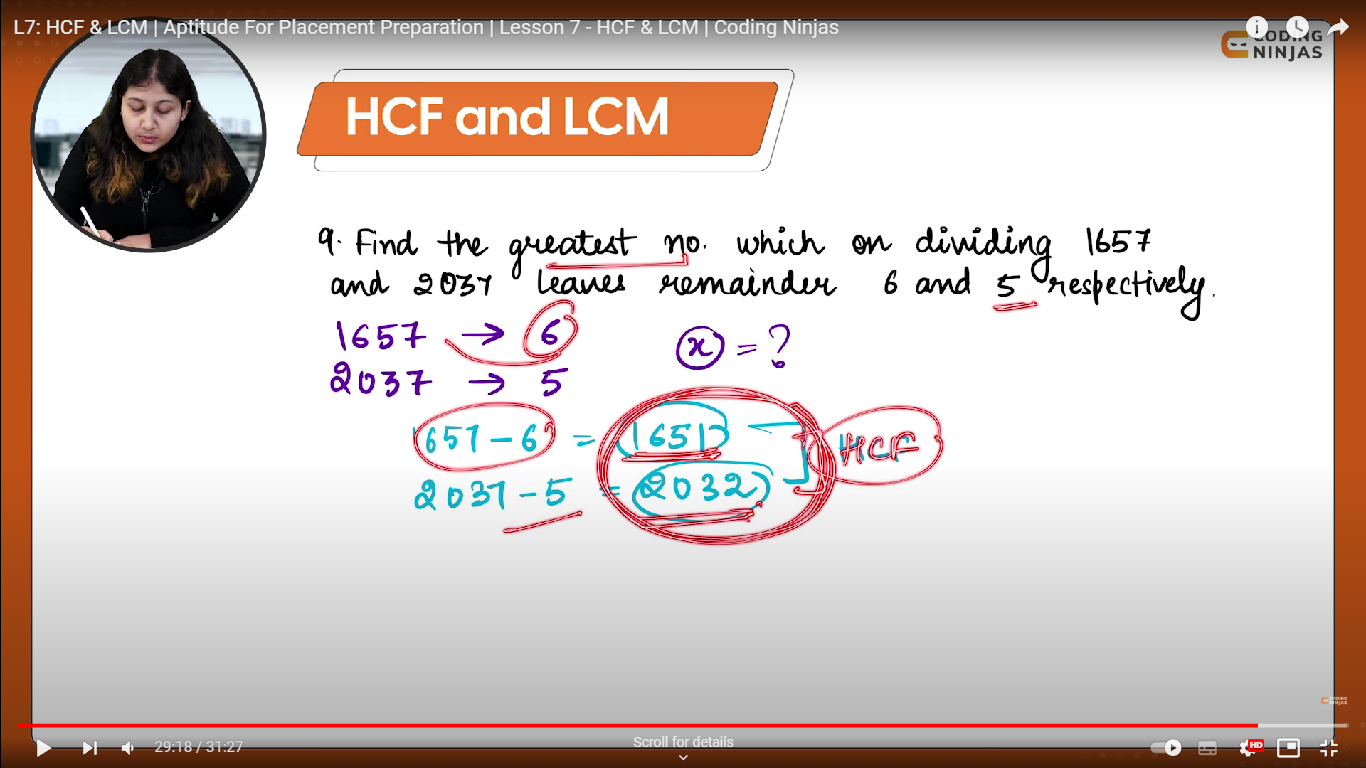 L7: HCF & LCM | Aptitude For Placement Preparation | Lesson 7 - HCF & LCM | Coding Ninjas
CODING
NINJAS
HCF and LCM
9. Find the greatest no. which on dividing 1657
and 2037 leaves remainder 6 and 5 respectively.
1657 → 6
x = ?
2037 → 5
1657 - 6 = 1651
HCF
2037 - 5 = 2032
CODING
NINJAS
29:18 / 31:27
Scroll for details
HD